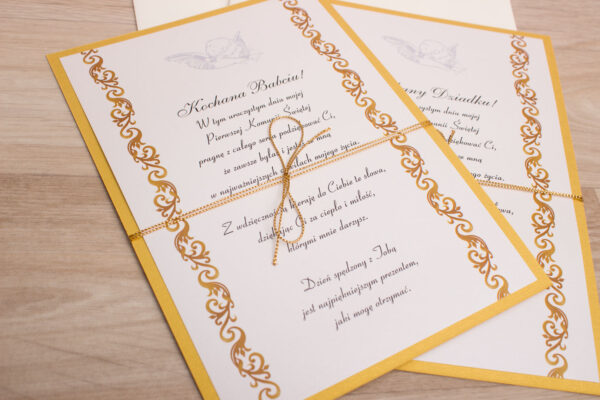 Kochana Babciu!
W tym uroczystym dniu mojej
Pierwszej Komunii Świętej
pragnę z całego serca podziękować Ci,
że zawsze byłaś i jesteś ze mną
w najważniejszych chwilach mojego życia.
Z wdzięcznością kieruję do Ciebie te słowa,
dziękując Ci za ciepło i miłość,
którymi mnie darzysz.
Dzień spędzony z Tobą
jest najpiękniejszym prezentem,
jaki mogę otrzymać.
Dziadku!
uroczystym dniu mojej
Komunii Świętej
Ci,
mną
życia.
słowa,